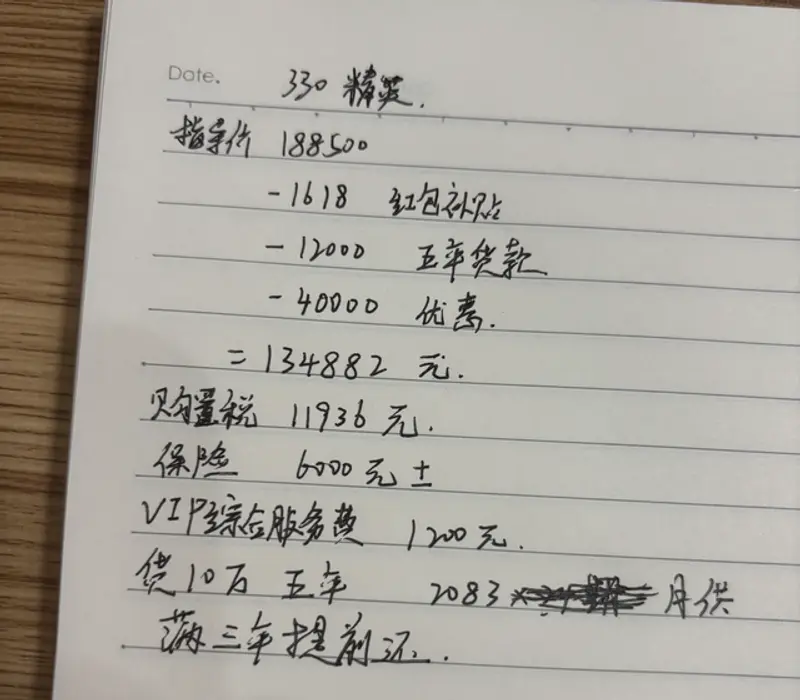 Date.
330 精英.
指导价 188500
-1618 红包补贴
-12000 五年贷款
-40000 优惠.
=134882 元.
购置税 11936 元.
保险 6000元±
VIP综合服务费 1200元.
贷10万 五年 2083 月供
满三年提前还.